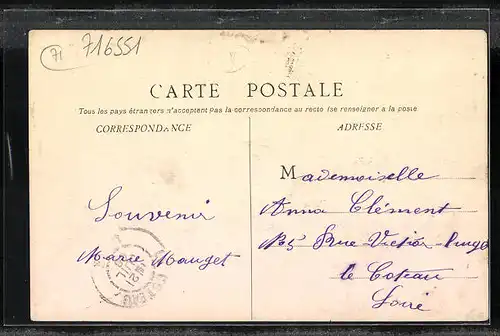 71
716551
CARTE POSTALE
Tous les pays étrangers n'acceptent pas la correspondance au recto (se renseigner à la poste
CORRESPONDANCE
ADRESSE
Mademoiselle
Anna Clément
Rue Victor Hugo
le Coteau
Loire
Souvenir
Marie Mauget